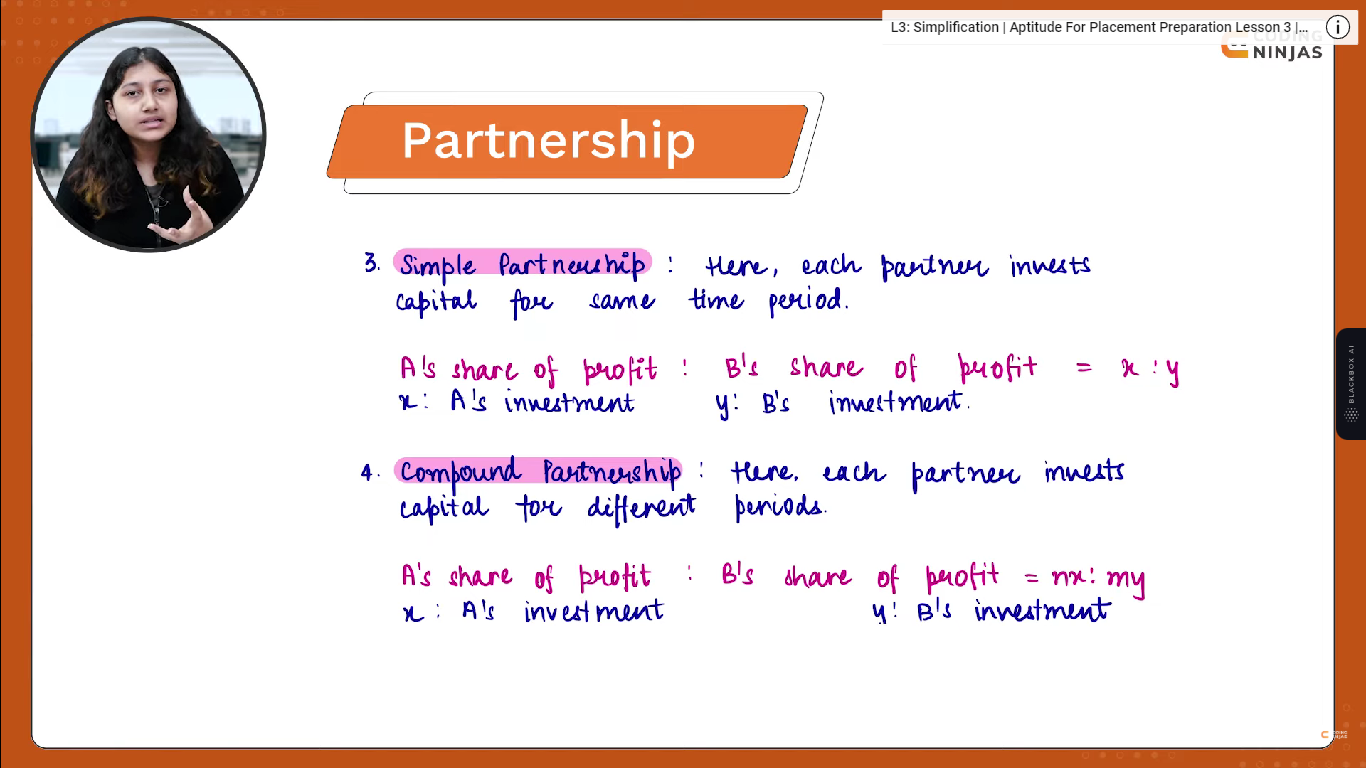 L3: Simplification | Aptitude For Placement Preparation Lesson 3 |...
CODING
NINJAS
Partnership
3. Simple Partnership : Here, each partner invests
capital for same time period.
A's share of profit : B's share of profit = x : y
x : A's investment y : B's investment.
BLACKBOX AI
4. Compound Partnership : Here, each partner invests
capital for different periods.
A's share of profit : B's share of profit = nx : my
x : A's investment y : B's investment
CODING
NINJAS